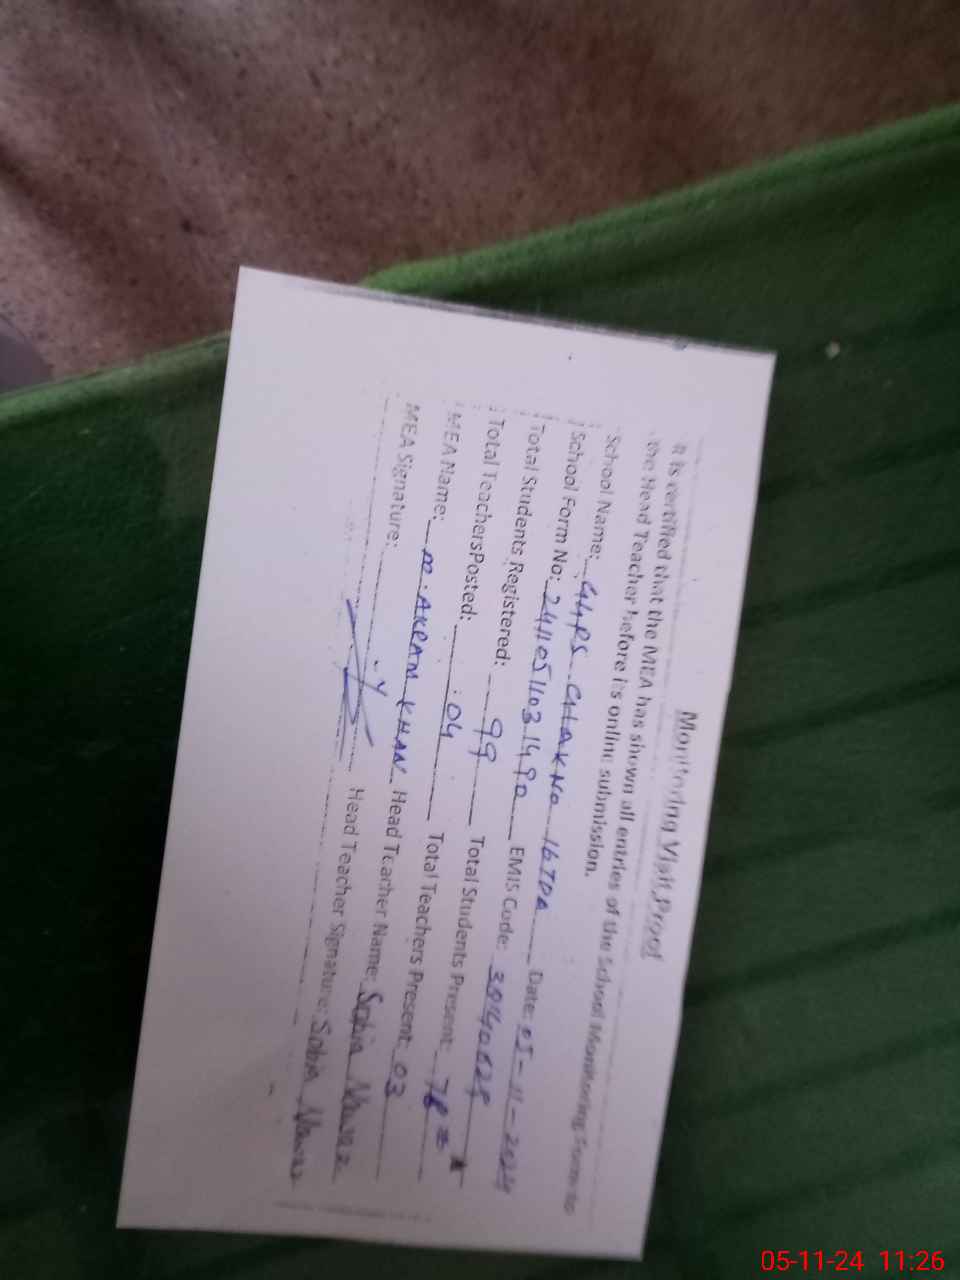 Monitoring Visit Proof
It is certified that the MEA has shown all entries of the School Monitoring Form to
the Head Teacher before its online submission.
School Name: GGPS CHAK NO 16TDA Date: 05-11-2024
School Form No: 241105110314 EMIS Code:
Total Students Registered: 99 Total Students Present: 78
Total TeachersPosted: 04 Total Teachers Present: 03
MEA Name: M. AKRAM KHAN Head Teacher Name: Sobia Nawaz
MEA Signature: Head Teacher Signature: Sobia Nawaz
05-11-24 11:26